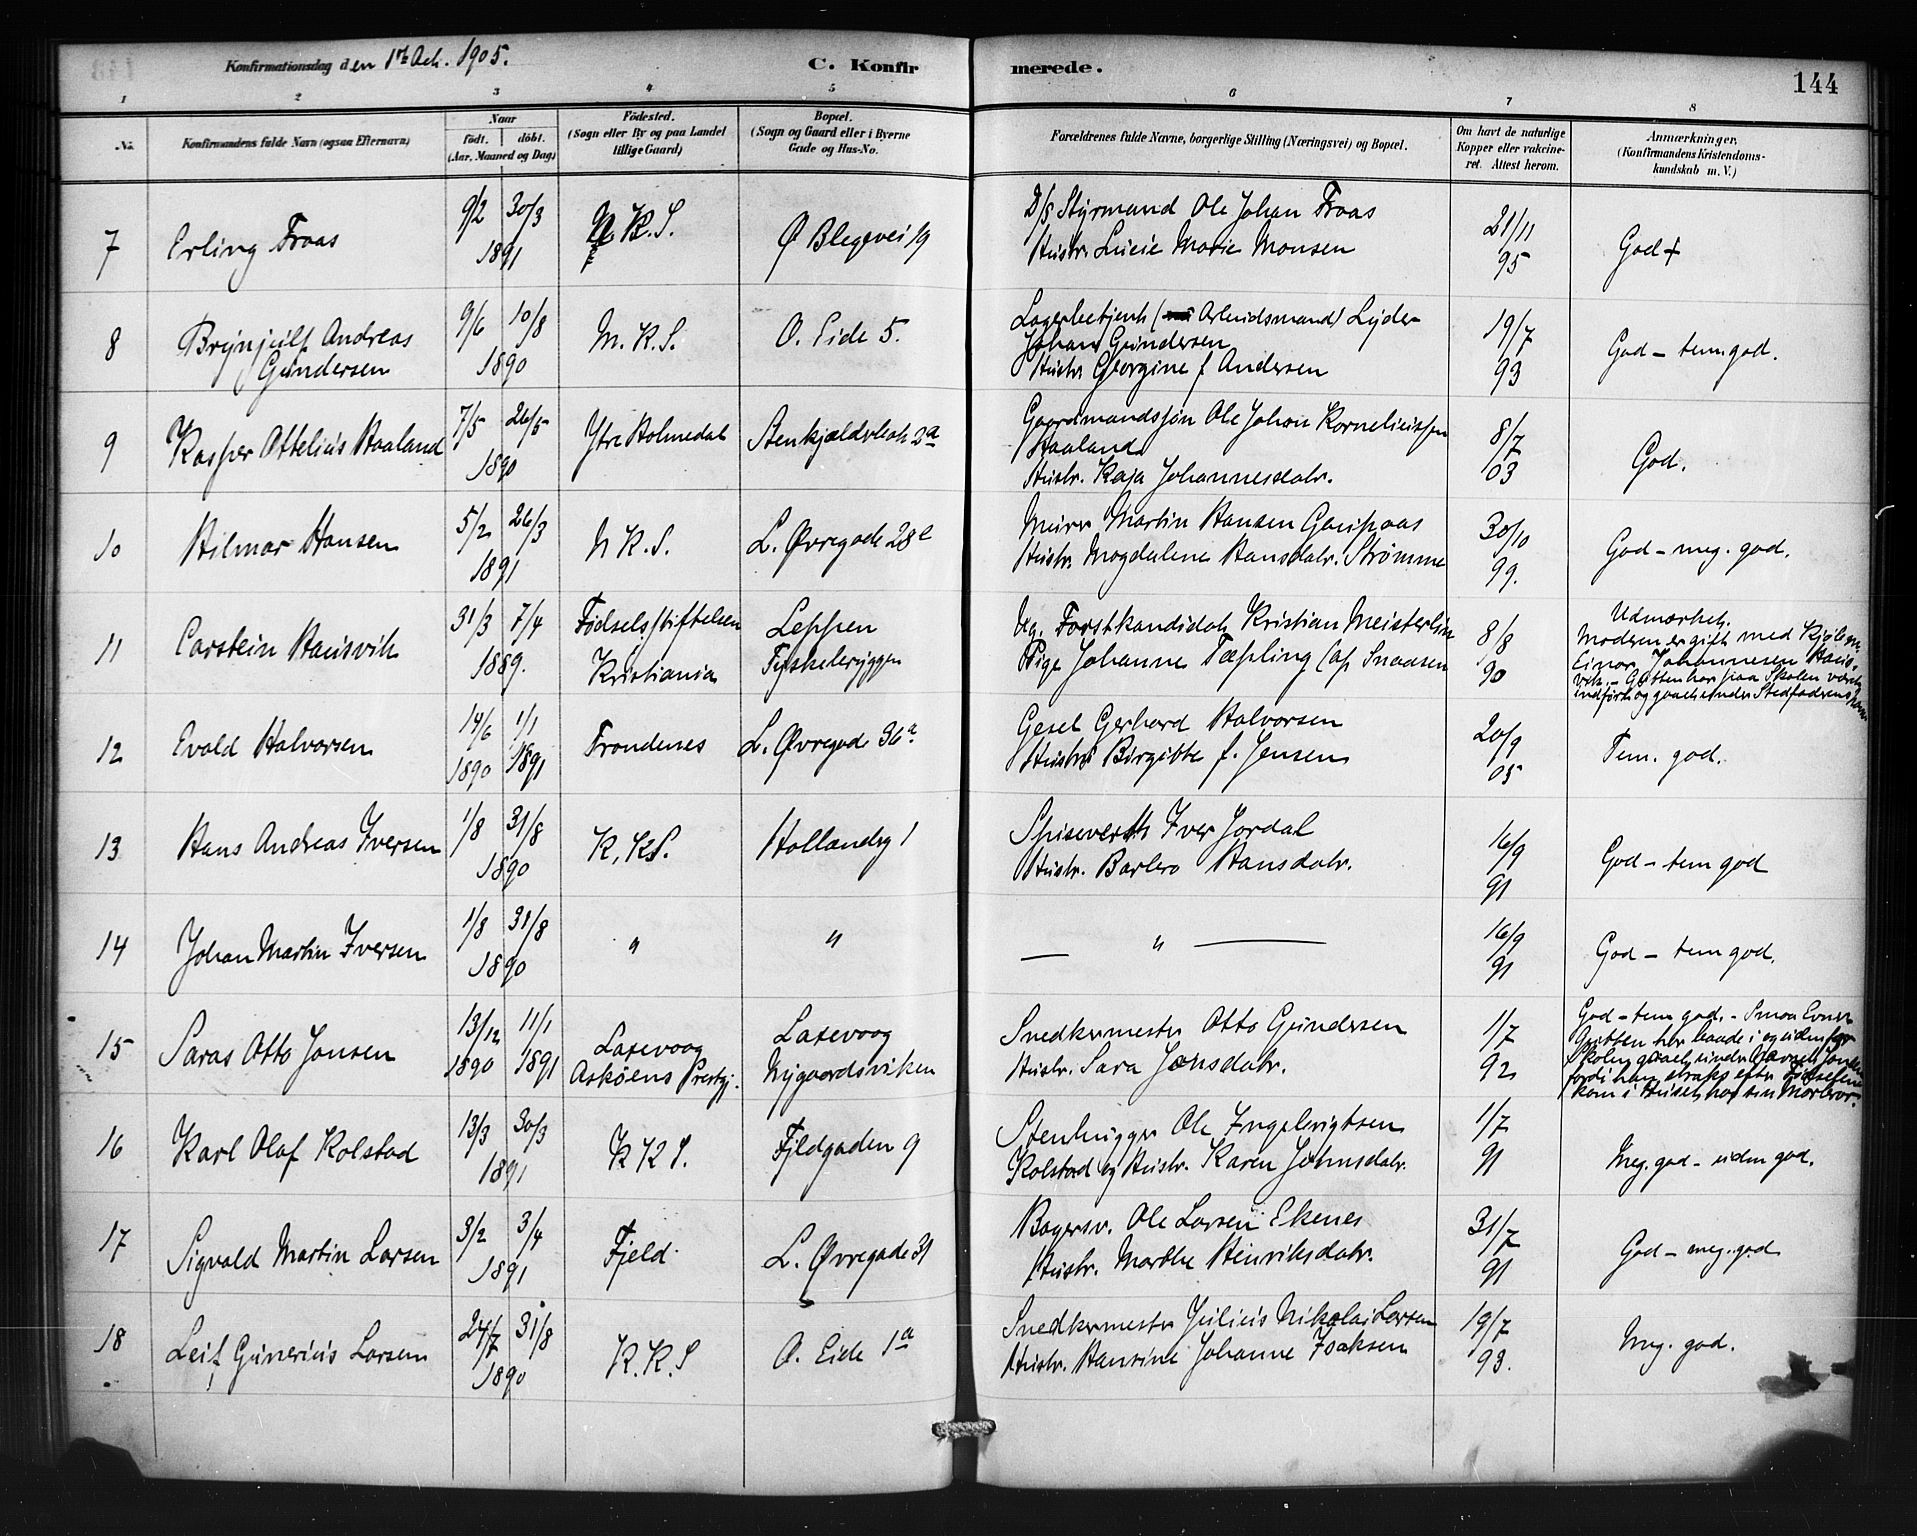 Konfirmationsdag den 1ste Oct. 1905.
C. Konfirmerede.
144
1 2 3 4 5 6 7 8
No.
Konfirmandens fulde Navn (ogsaa Efternavn)
Naar
födt. döbt.
(Aar, Maaned og Dag)
Födested.
(Sogn eller By og paa Landet
tillige Gaard)
Bopæl.
(Sogn og Gaard eller i Byerne
Gade og Hus-No.
Forældrenes fulde Navne, borgerlige Stilling (Næringsvei) og Bopæl.
Om havt de naturlige
Kopper eller vakcine-
ret. Attest herom.
Anmærkninger.
(Konfirmandens Kristendoms-
kundskab m. V.)
7 Erling Traas 9/2 30/3 1891 N. K. S. Ø Blegevei 19
D/S Styrmand Ole Johan Traas
Hustr. Lucie Marie Monsen
21/11 95 God +
8 Brynjulf Andreas
Gundersen
9/6 10/8 1890 N. K. S. O. Eide 5.
Lagerbetjent (Arbeidsmand) Lyder
Johan Gundersen
Hustr. Georgine f. Andersen
19/7 93 God - tem. god.
9 Kasper Ottelius Haaland 7/5 26/5 1890 Ytre Holmedal Stenkjældersm 2a
Gaardmandssøn Ole Johan Korneliussen
Haaland
Hustr. Kaja Johannesdatr.
8/7 03 God.
10 Hilmar Hansen 5/2 26/3 1891 N K. S. L. Øvregade 28e
Murer Martin Hansen Gaupaas
Hustr. Magdalene Hansdatr. Strømme
30/10 99. God - meg. god.
11 Carstein Hausvik 31/3 7/4 1889.
Fødselsstiftelsen
Kristiania
Leppen
Tyskebryggen
Ug. Forstkandidat Kristian Meisterlin
Pige Johanne Tæpling (af Snaasen
8/8 90
Udmærket.
Moderen er gift med Kjøbm.
Einar Johannesen Haus-
vik. - Gutten har paa Skolen været
indført og gaaet under Stedfaderens Navn
12 Evald Halvorsen 14/6 1890 1/1 1891 Trondenes L. Øvregade 36a
Gesel Gerhard Halvorsen
Hustr. Birgitte f. Jensen
20/9 05 Tem. god.
13 Hans Andreas Iversen 1/8 31/8 1890 K. K S. Hollandsg 1
Spiseverth Iver Jordal
Hustr. Barbro Hansdatr.
16/9 91 God - tem god
14 Johan Martin Iversen 1/8 31/8 1890 " " — " —
16/9 91 God - tem god.
15 Saras Otto Jansen 13/12 1890 11/1 1891
Laxevoog
Askøens Prestgj.
Laxevoog
Nygaardsviken
Snedkermester Otto Gundersen
Hustr. Sara Jonsdatr.
1/7 92
God - tem god. - Smaa Evner
Gutten har baade i og udenfor
Skolen gaaet under Navnet Jansen
fordi han straks efter Fødselen
kom i Huset hos sin Morbror.
16 Karl Olaf Kolstad 13/3 30/3 1891 K K S. Fjeldgaden 9
Stenhugger Ole Ingebrigtsen
Kolstad og Hustr. Karen Johnsdatr.
1/7 91 Meg. god - uden god.
17 Sigvald Martin Larsen 3/2 3/4 1891 Fjeld L. Øvregade 31
Bagersv. Ole Larsen Ekenes
Hustr. Marthe Henriksdatr.
31/7 91 God - meg. god
18 Leif Gunerius Larsen 24/7 31/8 1890 K. K. S O. Eide 1a
Snedkermester Julius Nikolai Larsen
Hustr. Hansine Johanne Isaksen
19/7 93. Meg. god.